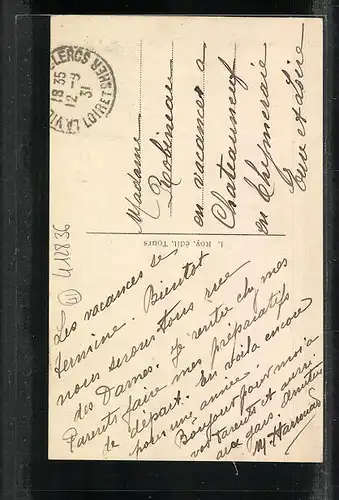 LA VIL CLERCS
18 35
12 - 9
31
LOIR ET CHER
Madame
Robineau
en vacances a
Chateauneuf
en Thymeraie
Eure et Loire
L. Roy, édit. Tours
41
412836
Les vacances se
termine. Bientot
nous serons tous rue
des Dames. Je rentre chez mes
Parents faire mes préparatifs
de départ. En voila encore
pour une année.
Bonjour pour moi a
vos Parents et aussi
aux gars. Amitiés